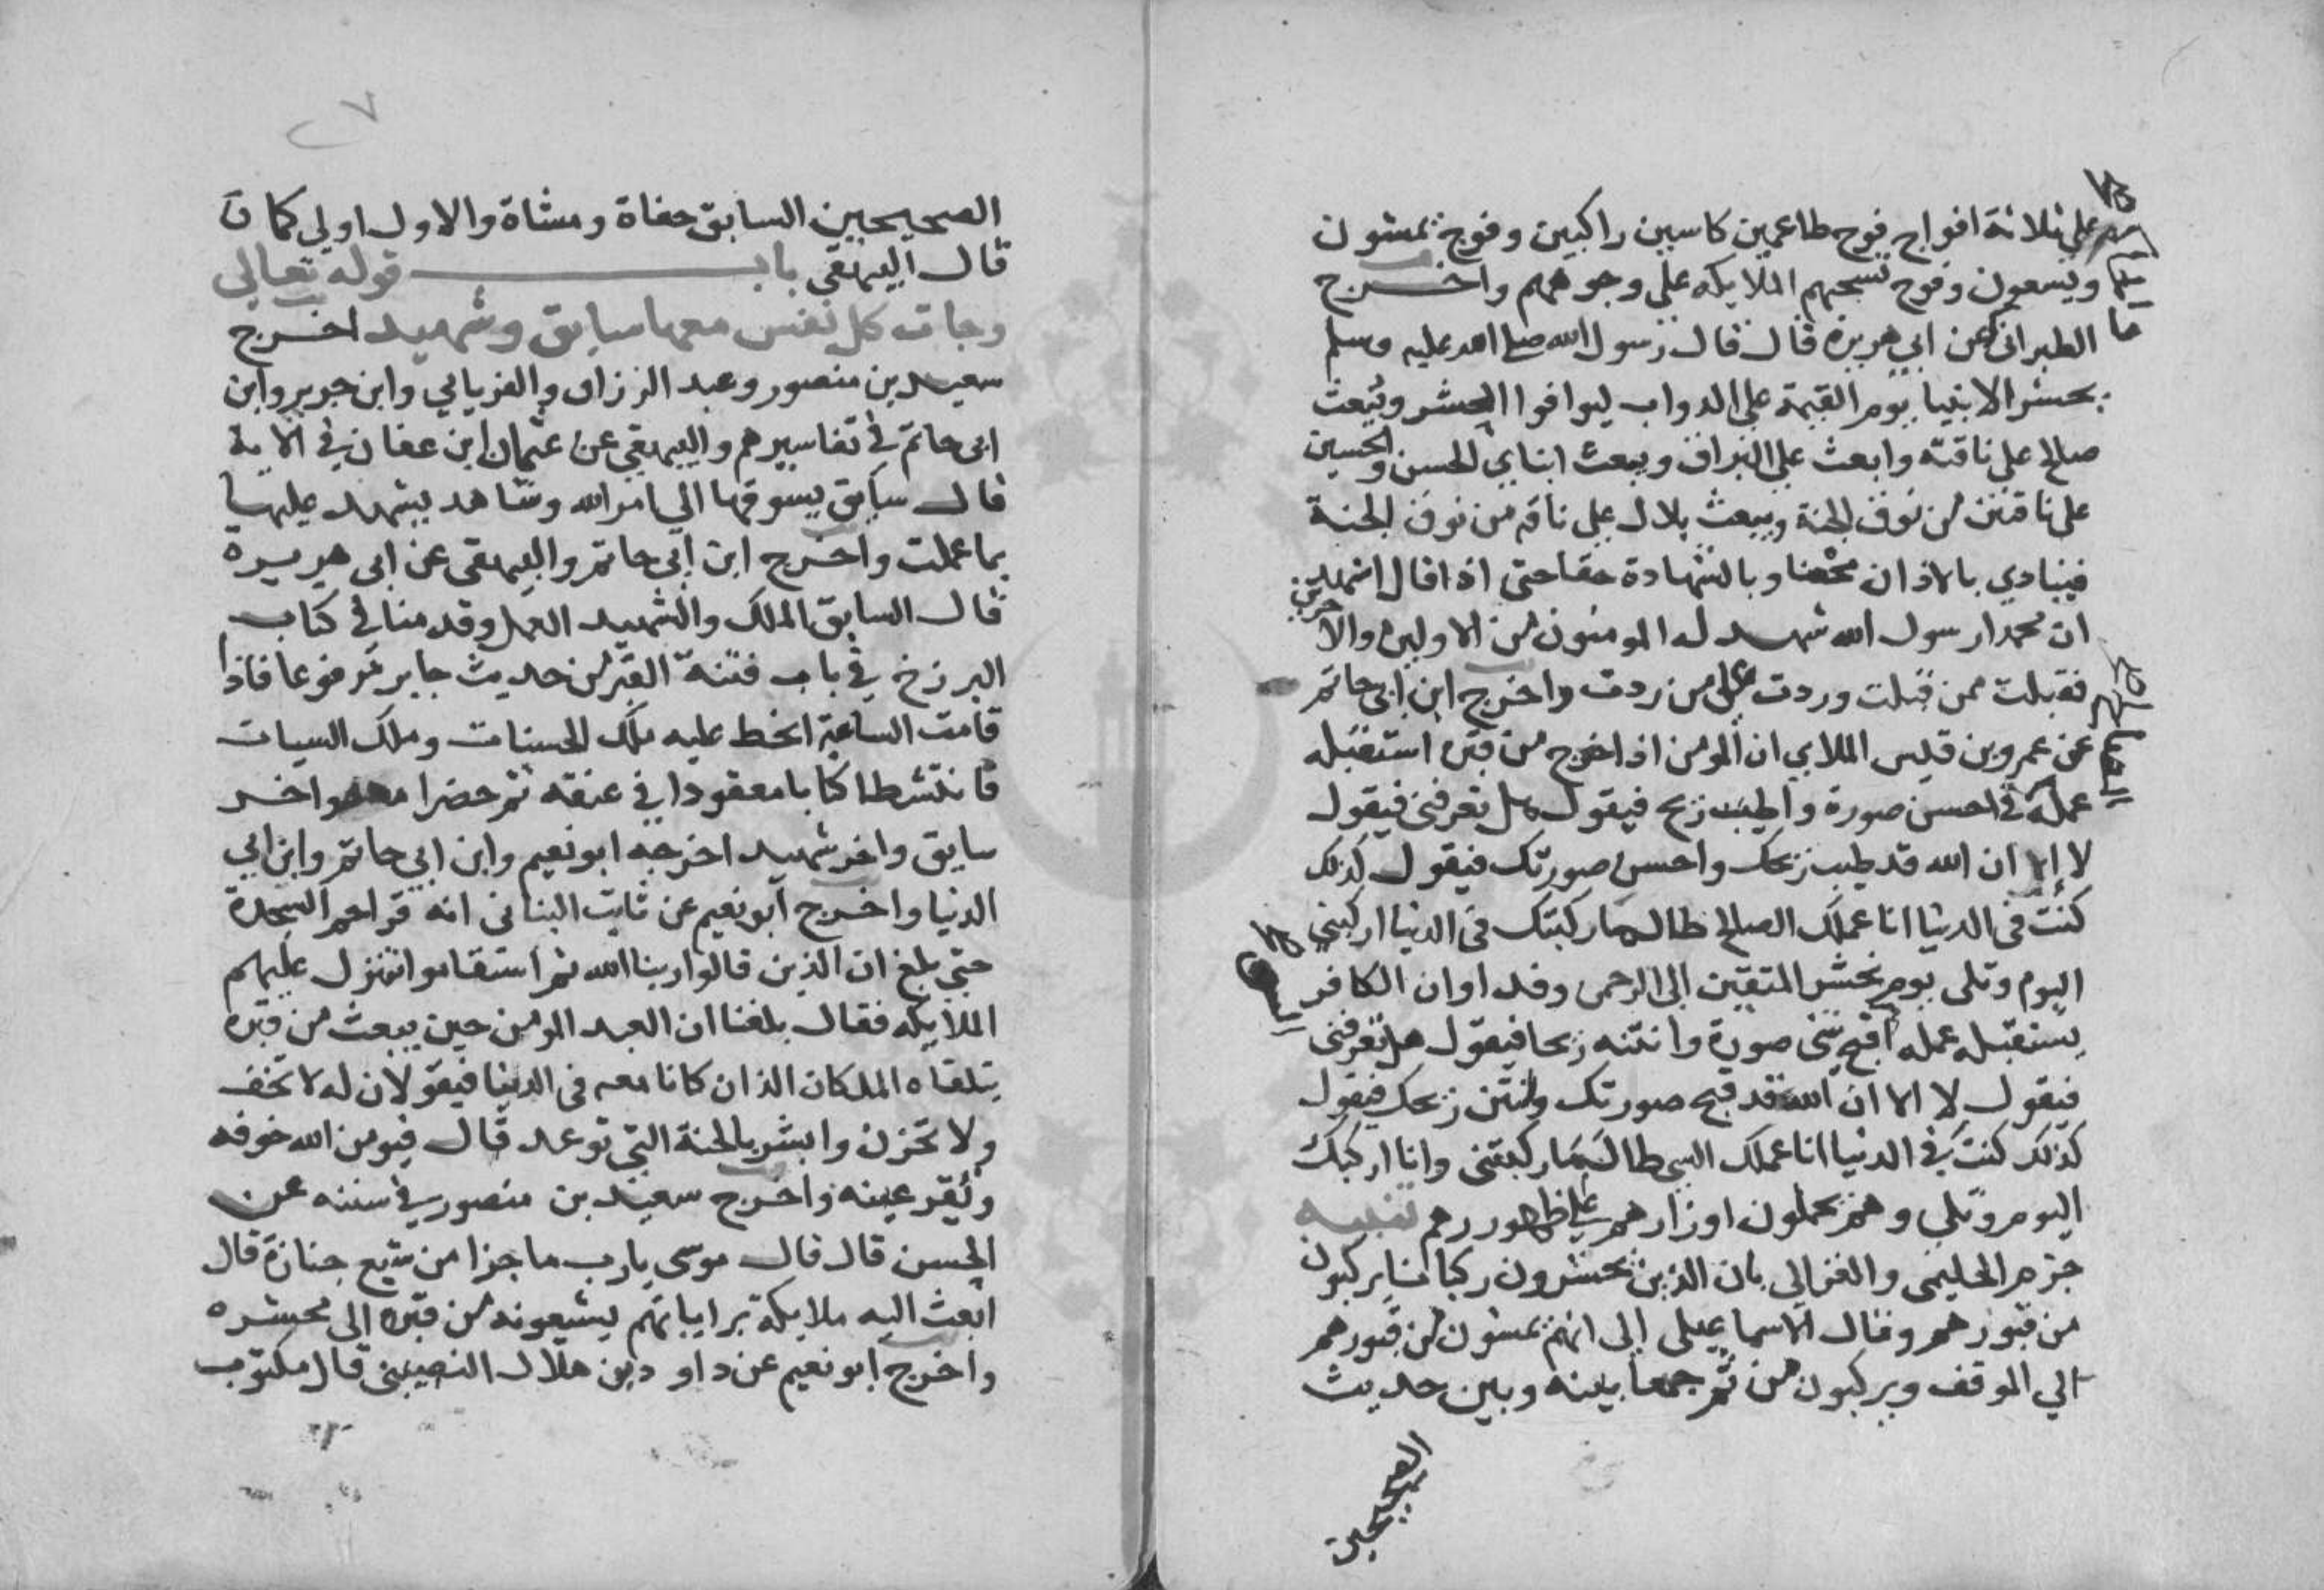 علي ثلاثة افواج فوج طاعمين كاسين راكبين وفوج يمشون
ويسعون وفوج تسحبهم الملايكه علي وجوههم واخرج
الطبراني عن ابي هريرة قال قال رسول الله صلى الله عليه وسلم
يحشر الانبيا يوم القيمة علي الدواب ليوافوا المحشر ويبعث
صالح على ناقته وابعث علي البراق ويبعث ابناي الحسن والحسين
على ناقتين من نوق الجنة ويبعث بلال علي ناقه من نوق الجنة
فينادي بالاذان محضا وبالشهادة حقا حتى اذا قال اشهد
ان محمدا رسول الله شهد له المومنون من الاولين والاخرين
فقبلت ممن قبلت وردت علي من ردت واخرج ابن ابي حاتم
عن عمرو بن قيس الملاي ان المومن اذا خرج من قبره استقبله
عمله في احسن صورة واطيب ريح فيقول هل تعرفني فيقول
لا الا ان الله قد طيب ريحك واحسن صورتك فيقول كذلك
كنت في الدنيا انا عملك الصالح طال ما ركبتك في الدنيا اركبني
اليوم وتلى يوم نحشر المتقين الى الرحمن وفدا وان الكافر
يستقبله عمله اقبح شي صورة وانتنه ريحا فيقول هل تعرفني
فيقول لا الا ان الله قد قبح صورتك وانتن ريحك فيقول
كذلك كنت في الدنيا انا عملك السي طال ما ركبتني وانا اركبك
اليوم وتلي وهم يحملون اوزارهم علي ظهوررهم تنبيه
جزم الحليمي والغزالي بان الذين يحشرون ركبانا يركبون
من قبورهم وقال الاسماعيلي الى انهم يمشون من قبورهم
الي الموقف ويركبون من ثم جمعا بينه وبين حديث
الصحيحين
٢٧
الصحيحين السابق حفاة ومشاة والاول اولي كما ت
قال البيهقي باب قوله تعالى
وجات كل نفس معها سايق وشهيد اخرج
سعيد بن منصور وعبد الرزاق والفريابي وابن جرير وابن
ابي حاتم في تفاسيرهم والبيهقي عن عثمان ابن عفان في الاية
قال سايق يسوقها الي امر الله وشاهد يشهد عليها
بما عملت واخرج ابن ابي حاتم والبيهقي عن ابي هريرة
قال السايق الملك والشهيد العمل وقدمنا في كتاب
البرزخ في باب فتنة القبر من حديث جابر مرفوعا فاذا
قامت الساعة انحط عليه ملك الحسنات وملك السيات
فانتشطا كتابا معقودا في عنقه ثم حضرا معه واخد
سايق واخر شهيد اخرجه ابو نعيم وابن ابي حاتم وابن ابي
الدنيا واخرج ابو نعيم عن ثابت البناني انه قرا حم السجدة
حتي بلغ ان الذين قالوا ربنا الله ثم استقاموا تتنزل عليهم
الملايكه فقال بلغنا ان العبد المومن حين يبعث من قبره
يتلقاه الملكان الذان كانا معه في الدنيا فيقولان له لا تخف
ولا تحزن وابشر بالجنة التي توعد قال فيومن الله خوفه
ويقر عينه واخرج سعيد بن منصور في سننه عن
الحسن قال قال موسى يارب ما جزا من شيع جنازة قال
ابعث اليه ملايكة براياتهم يشيعونه من قبره الى محشره
واخرج ابو نعيم عن داود بن هلال النصيبني قال مكتوب